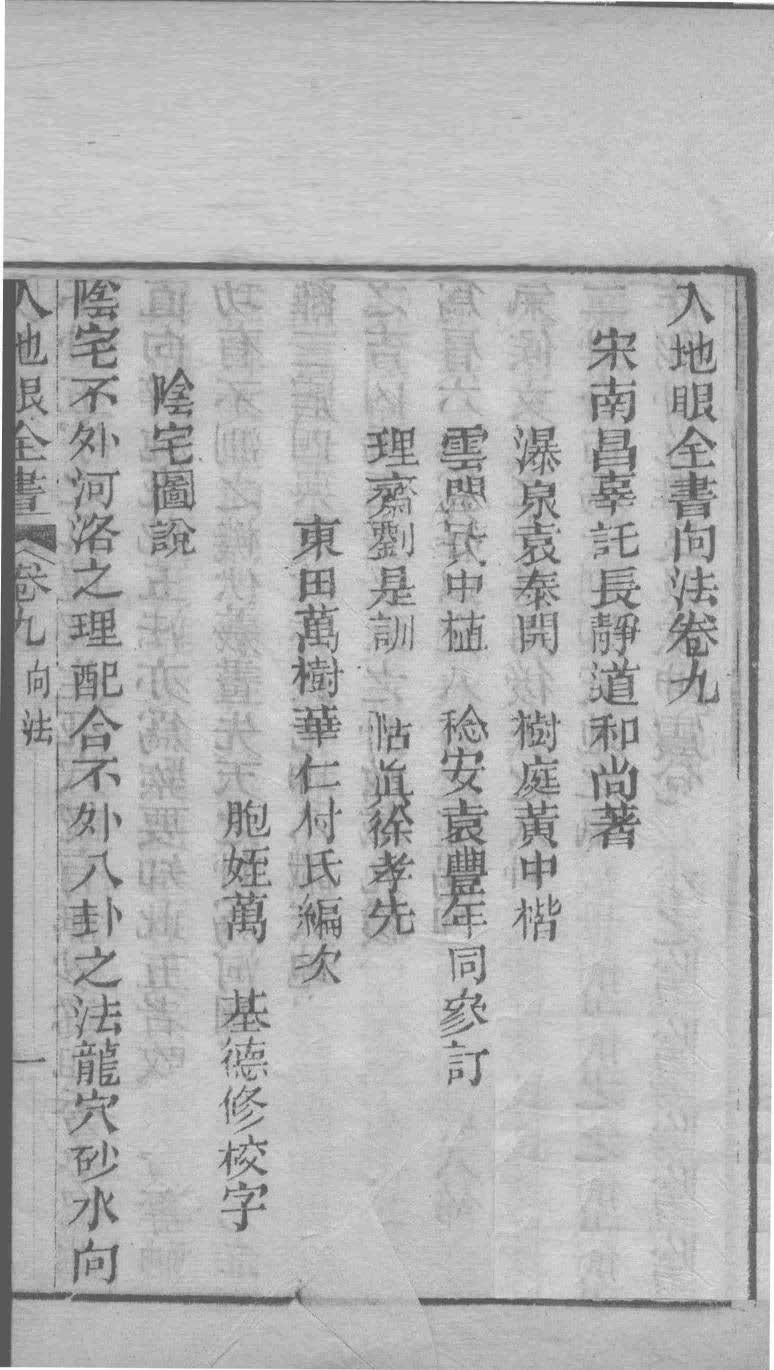 入地眼全書向法卷九
宋南昌辜託長靜道和尚著
瀑泉袁泰開 樹庭黃中楷
雲閒黃中植 稔安袁豐年同參訂
理齋劉是訓 怗眞徐孝先
東田萬樹華仁村氏編次
胞姪萬 基德修校字
陰宅圖說
陰宅不外河洛之理配合不外八卦之法龍穴砂水向
入地眼全書 卷九 向法 一